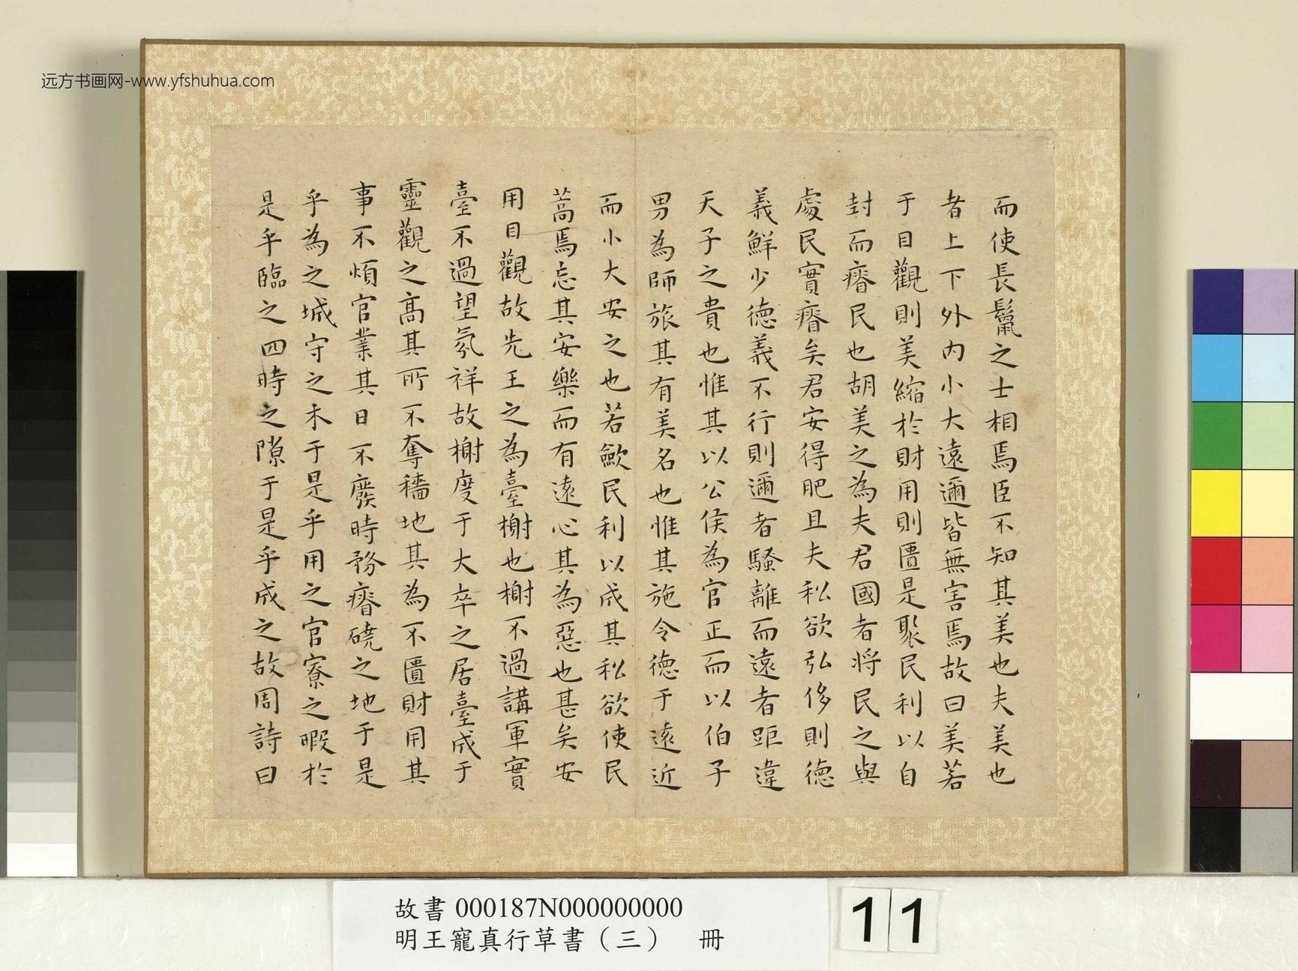 远方书画网-www.yfshuhua.com
而使長鬣之士相焉臣不知其美也夫美也
者上下外内小大遠邇皆無害焉故曰美若
于目觀則美縮於財用則匱是聚民利以自
封而瘠民也胡美之為夫君國者將民之與
處民實瘠矣君安得肥且夫私欲弘侈則德
義鮮少德義不行則邇者騷離而遠者距違
天子之貴也惟其以公侯為官正而以伯子
男為師旅其有美名也惟其施令德于遠近
而小大安之也若歛民利以成其私欲使民
蒿焉忘其安樂而有遠心其為惡也甚矣安
用目觀故先王之為臺榭也榭不過講軍實
臺不過望氛祥故榭度于大卒之居臺成于
靈觀之高其所不奪穡地其為不匱財用其
事不煩官業其日不廢時務瘠磽之地于是
乎為之城守之木于是乎用之官寮之暇於
是乎臨之四時之隙于是乎成之故周詩曰
故書 000187N000000000
明王寵真行草書（三） 冊
11